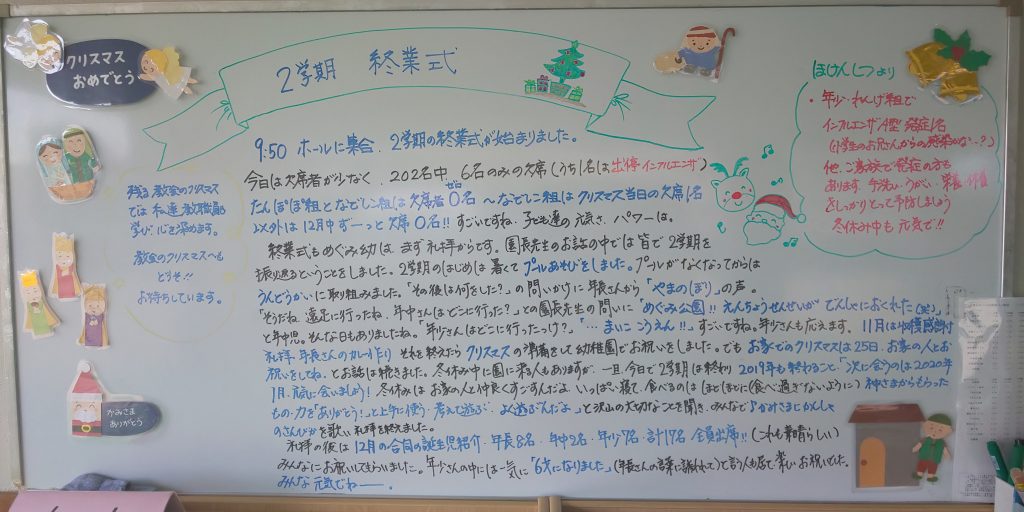 クリスマス
おめでとう
2学期 終業式
9:50 ホールに集合、2学期の終業式が始まりました。
今日は欠席者が少なく、202名中、6名のみの欠席(うち1名は出停インフルエンザ)
たんぽぽ組となでしこ組は欠席者0名 〜なでしこ組はクリスマス当日の欠席1名
ゼロ
以外は12月中ずーっと欠席0名!! すごいですね、子ども達の元気さ、パワーは。
終業式もめぐみ幼は、まず礼拝からです。園長先生のお話の中では皆で2学期を
振り返るということをしました。2学期のはじめは暑くてプールあそびをしました。プールがなくなってからは
うんどうかいに取り組みました。「その後は何をした?」の問いかけに年長さんから「やまのぼり」の声。
「そうだね、遠足に行ったね、年中さんはどこに行った?」との園長先生の問いに「めぐみ公園!! えんちょうせんせいが でんしゃにおくれた(笑)」
と年中児。そんな日もありましたね。「年少さんはどこに行ったっけ?」「…まいこ こうえん!!」すごいですね。年少さんも応えます。11月は収穫感謝
礼拝、年長さんのカレー作り それを終えたらクリスマスの準備をして幼稚園でお祝いをしました。でもお家でのクリスマスは25日、お家の人とお
祝いをしてね、とお話は続きました。冬休み中に園に来る人もありますが、一旦、今日で2学期は終わり 2019年も終わること、「次に会うのは2020年
1月、元気に会いましょう! 冬休みは お家の人と仲良くすごすんだよ、いっぱい寝て、食べるのは ほどほどに(食べ過ぎないように) 神さまからもらった
もの・力を「ありがとう!」と上手に使う・考えて遊ぶ、よく遊ぶんだよ」と沢山の大切なことを聞き、みんなで♪かみさまにかんしゃ
のさんびかを歌い 礼拝を終えました。
礼拝の後は 12月の合同の誕生児紹介・年長8名・年中2名・年少7名・計17名 全員出席!! (これも素晴らしい)
みんなにお祝いしてもらいました。年少さんの中には一気に「6才になりました」(年長さんの言葉に誘われて)と言う人も居て、楽しいお祝いでした。
みんな 元気でねー。
残る教会のクリスマス
では私達教職員も
学び、心を深めます。
教会のクリスマスへも
どうぞ!!
お待ちしています。
かみさま
ありがとう
ほけんしつより
・年少・れんげ組で
インフルエンザA型 発症1名
(小学生のお兄さんからの感染かな…?)
他、ご家族で発症の方も
あります。手洗い・うがい・栄養・休養
をしっかりとって予防しましょう
冬休み中も元気で!!